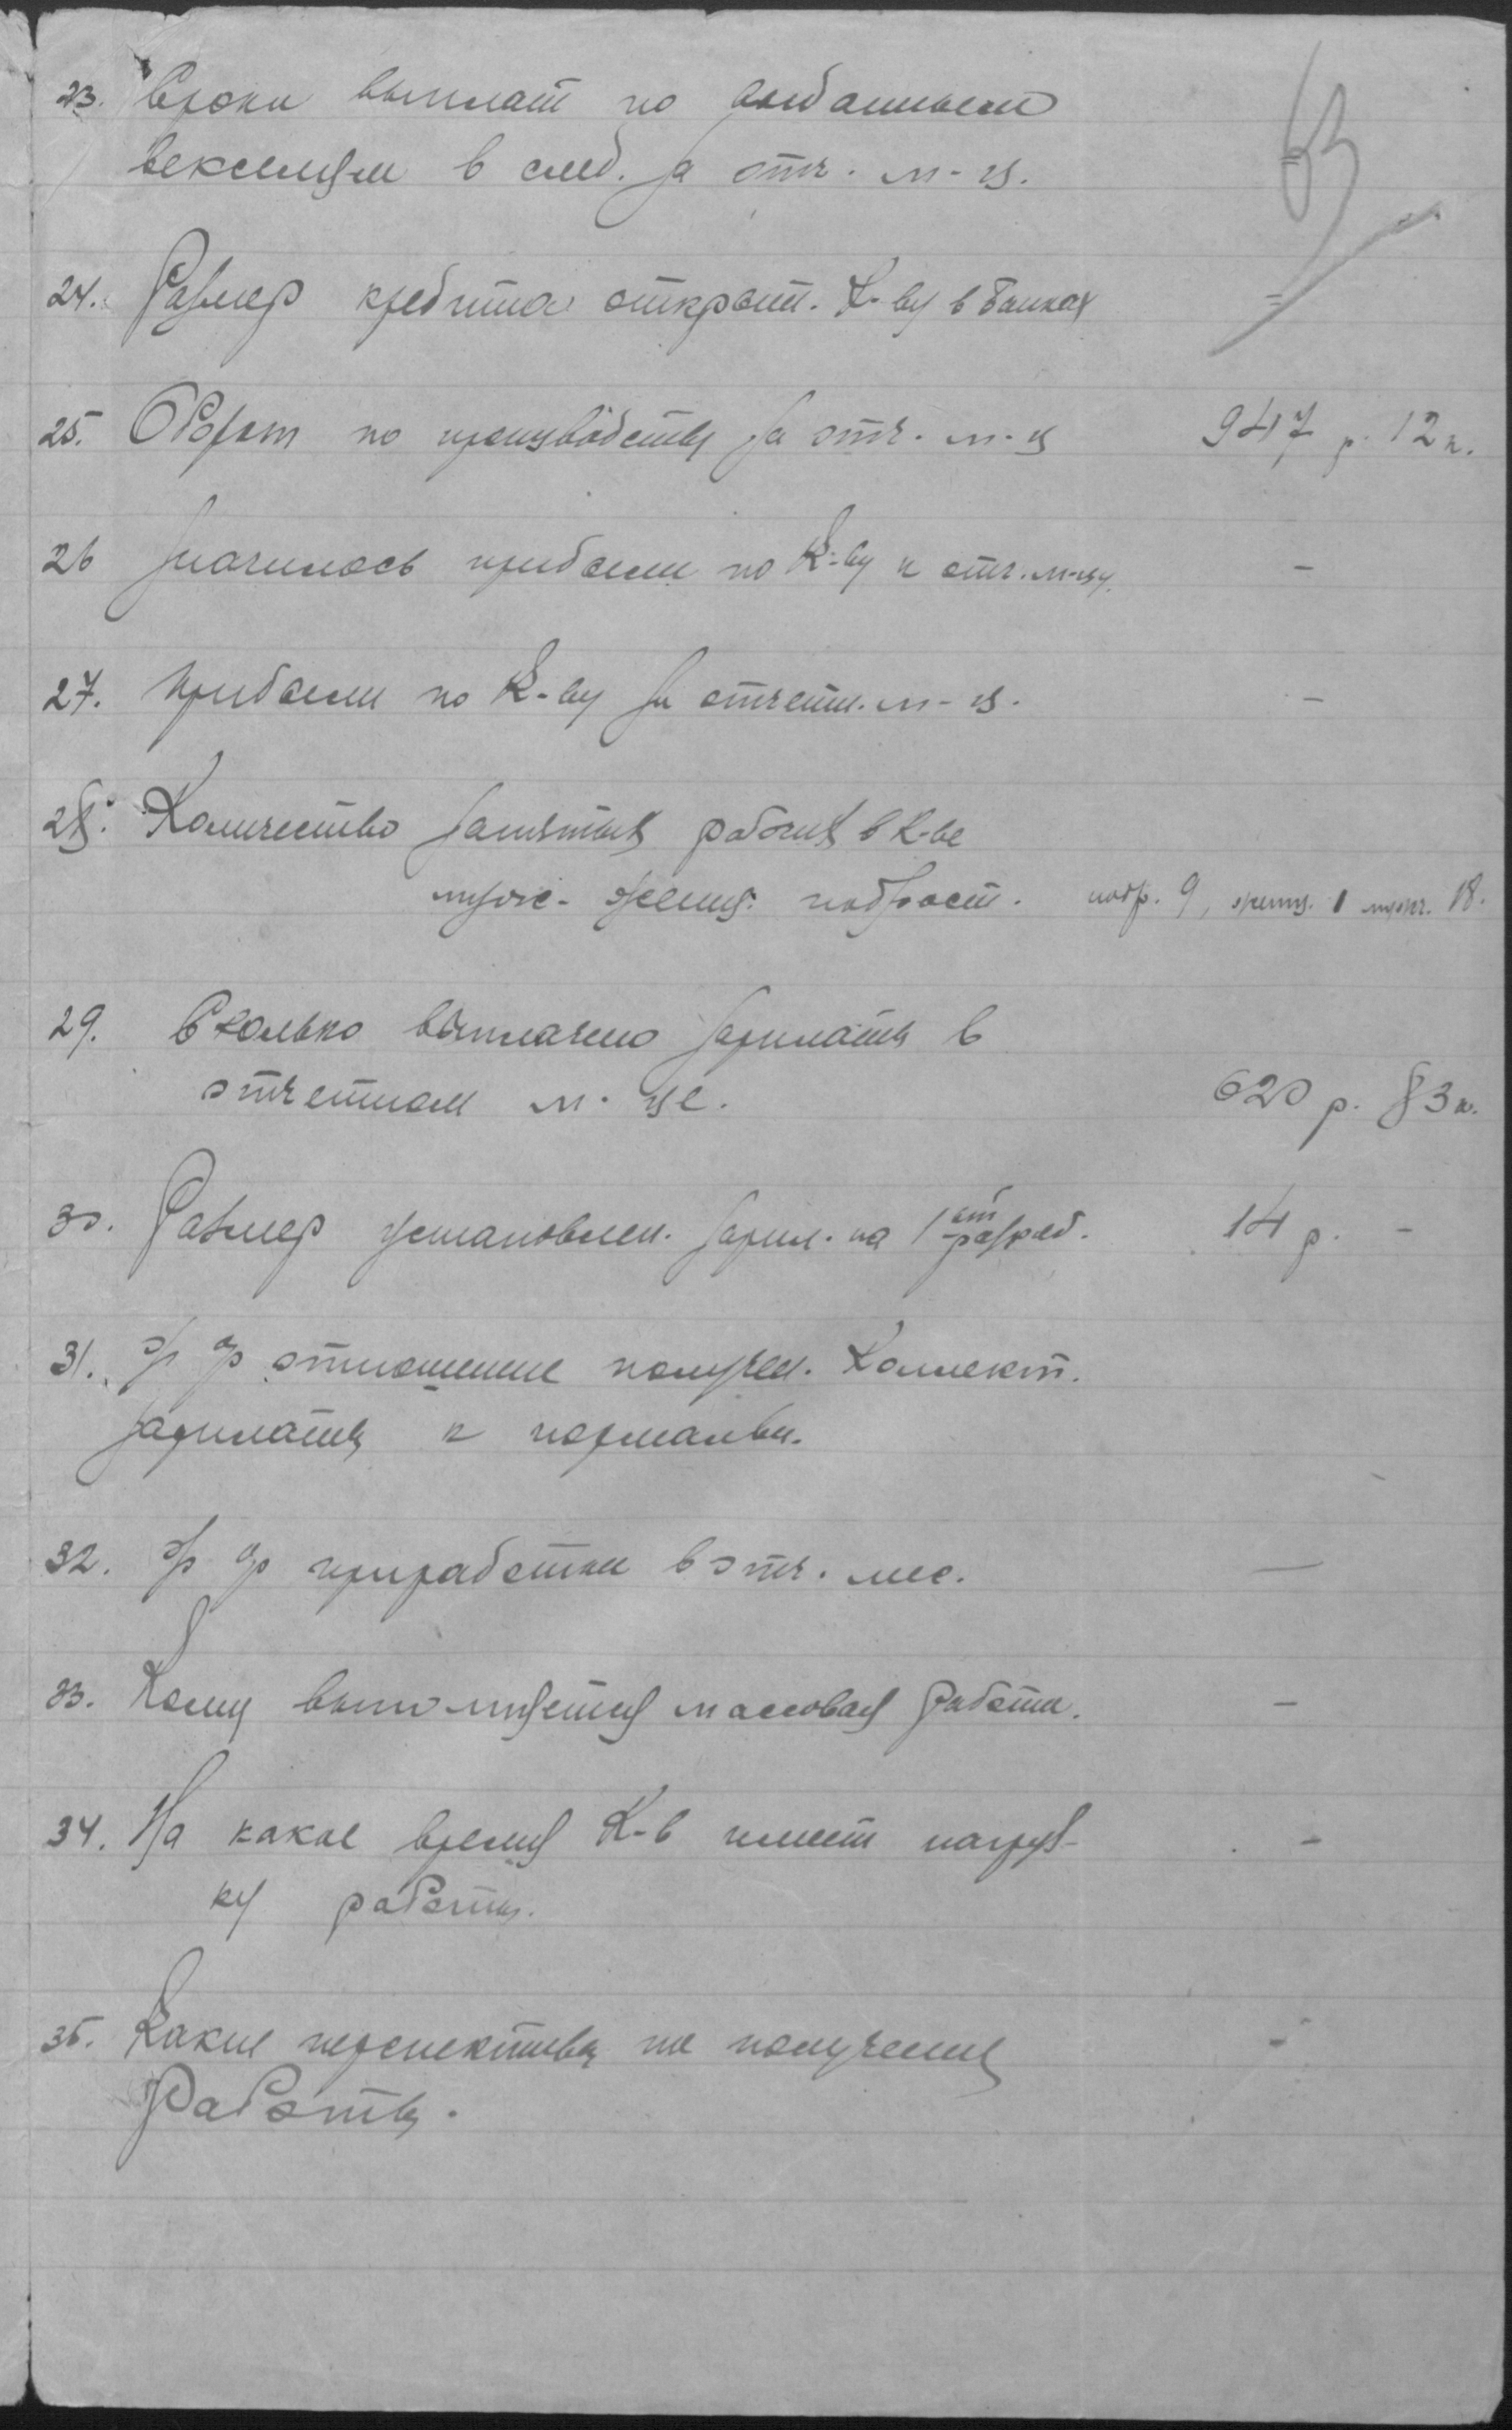 63
23. Сроки выплат по выданным
векселям в след. за отч. м-ц. =
24. Размер кредита открыт. К-ву в Банках =
25. Оборот по производству за отч. м-ц 947 р. 12 к.
26 Значилось прибыли по К-ву к отч. м-цу. -
27. Прибыли по К-ву за отчетн. м-ц. -
28. Количество занятых рабочих в К-ве
мужс. женщ. подрост. подр. 9, женщ. 1 мужч. 18.
29. Сколько выплачено зарплаты в
отчетном м-це. 620 р. 83 к.
30. Размер установлен. зарпл. на 1ый разряд. 14 р. -
31. % % отношение получен. Коллект.
зарплаты к нормальн.
32. % % приработки в отч. мес. —
33. Кому выполняется массовая работа. -
34. На какое время К-в имеет нагруз-
ку работы. -
35. Какие перспективы на получение
работы. -